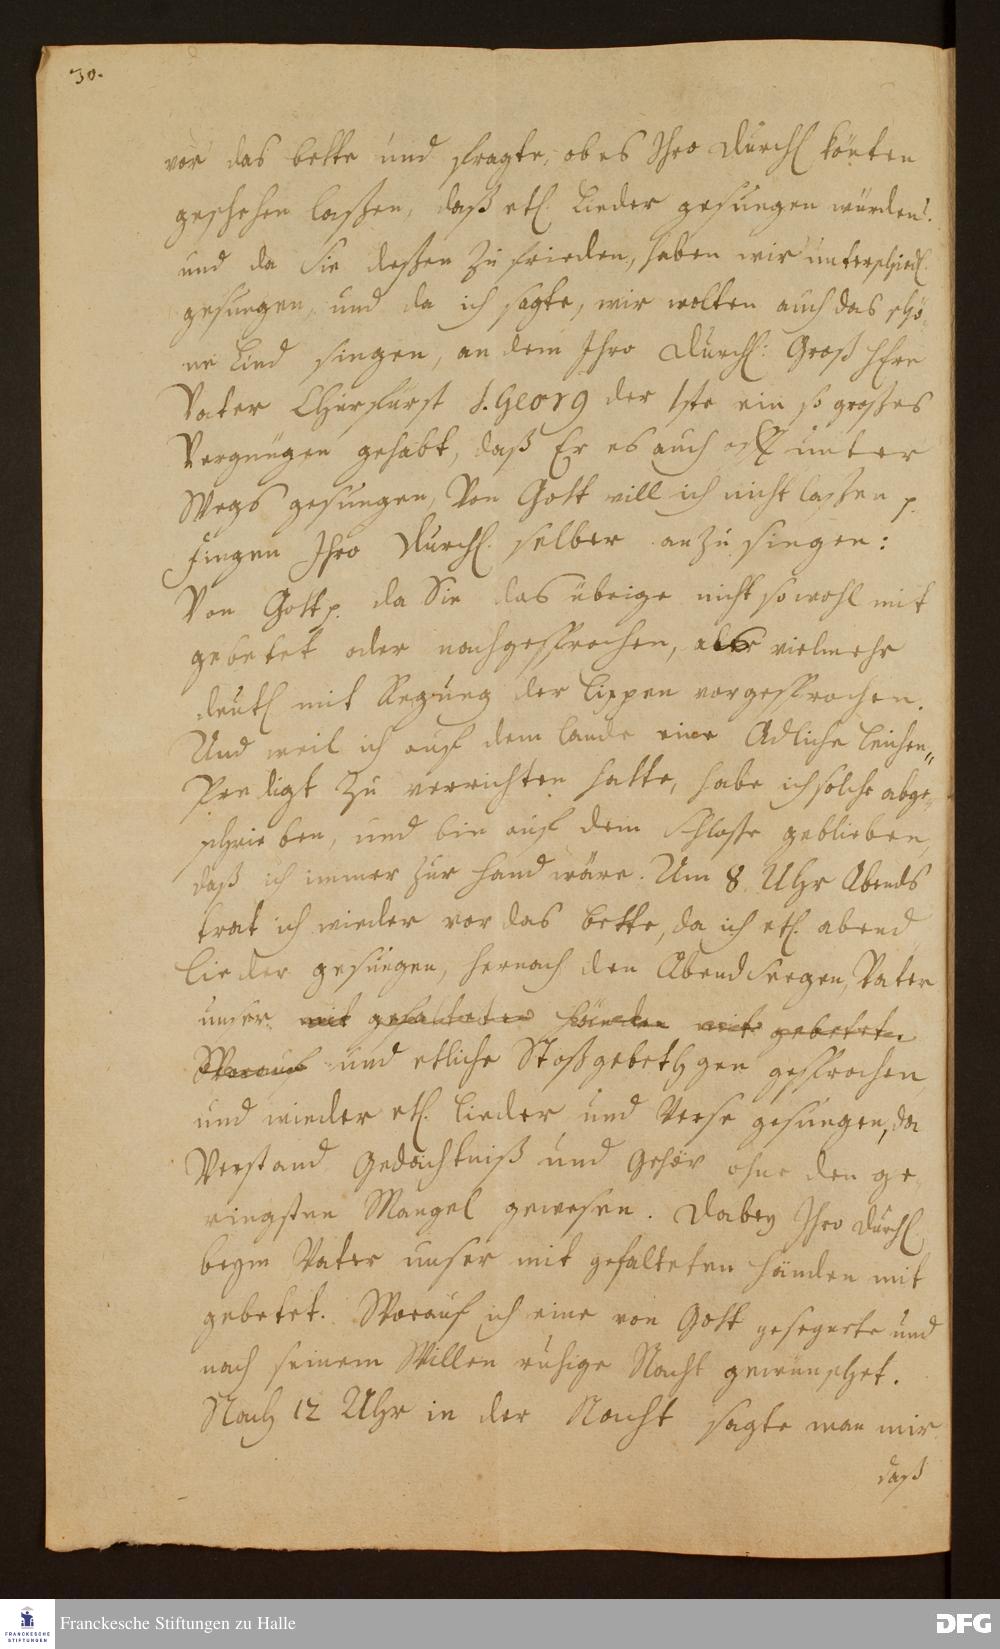 30.
vor das bette und fragte, ob es Ihro Durchl könten
geschehen laßen, daß etl. Lieder gesungen würden.
und da Sie deßen zu frieden, haben wir unterschiedl.
gesungen, und da ich sagte, wir wolten auch das schö-
ne Lied singen, an dem Ihro Durchl: Groß Herr
Vater Churfürst J. Georg der Iste ein so großes
Vergnügen gehabt, daß Er es auch offt unter
Wegs gesungen, Von Gott will ich nicht laßen p.
fingen Ihro Durchl. selber an zu singen:
Von Gott p. da Sie das übrige nicht sowohl mit
gebetet oder nachgesprochen, als vielmehr
deutl mit Regung der Lippen vorgesprochen.
Und weil ich auf dem Lande eine Adliche Leichen„
Predigt zu verrichten hatte, habe ich solche abge„
schrieben, und bin auf dem Schloße geblieben,
daß ich immer zur hand wäre. Um 8. Uhr Abends
trat ich wieder vor das bette, da ich etl. abend
Lieder gesungen, hernach den Abend Seegen, Vater
unser mit gefalteten Händen mit gebetet.
Worauf und etliche Stoßgebethgen gesprochen,
und wieder etl. Lieder und Verse gesungen, da
Verstand Gedächtniß und Gehör ohne den ge-
ringsten Mangel gewesen. Dabey Ihro Durchl.
beym Vater unser mit gefalteten Händen mit
gebetet. Worauf ich eine von Gott gesegnete und
nach seinem Willen ruhige Nacht gewünschet.
Nach 12 Uhr in der Nacht sagte man mir
daß
FRANCKESCHE STIFTUNGEN
Franckesche Stiftungen zu Halle
DFG